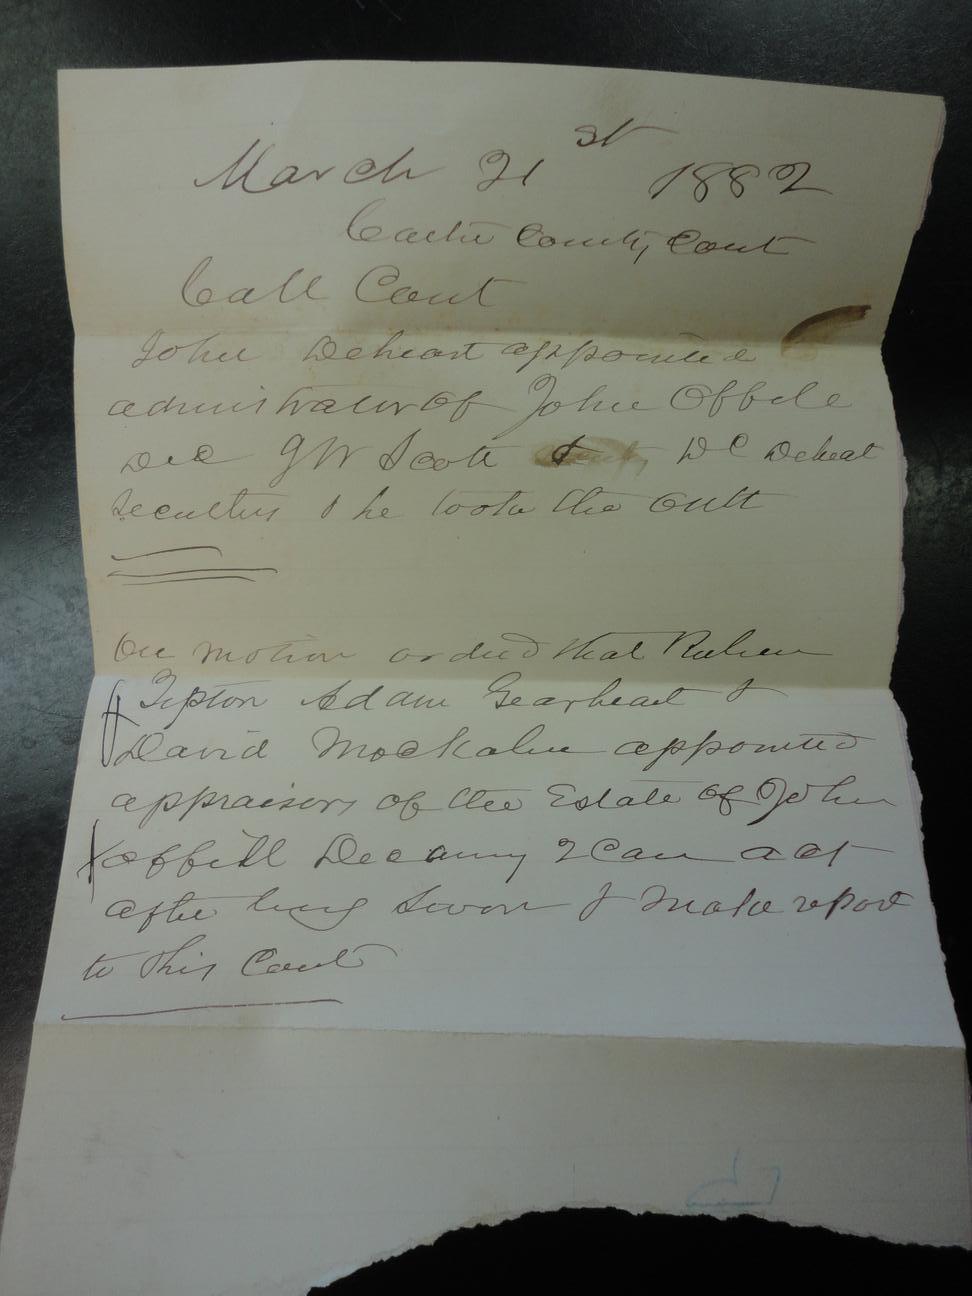 March 21st 1882
Carter County Court
Call Court
John Deheart appointed
administrator of John Offile
Dec G W Scott & D C Deheat
Securties & he took the outh
On motion orderd that Ruben
Tipton Adam Gearheart &
David Mockabee appointed
appraisors of the Estate of John
offill Dec any 2 Can act
after being Sworn & make report
to this Court